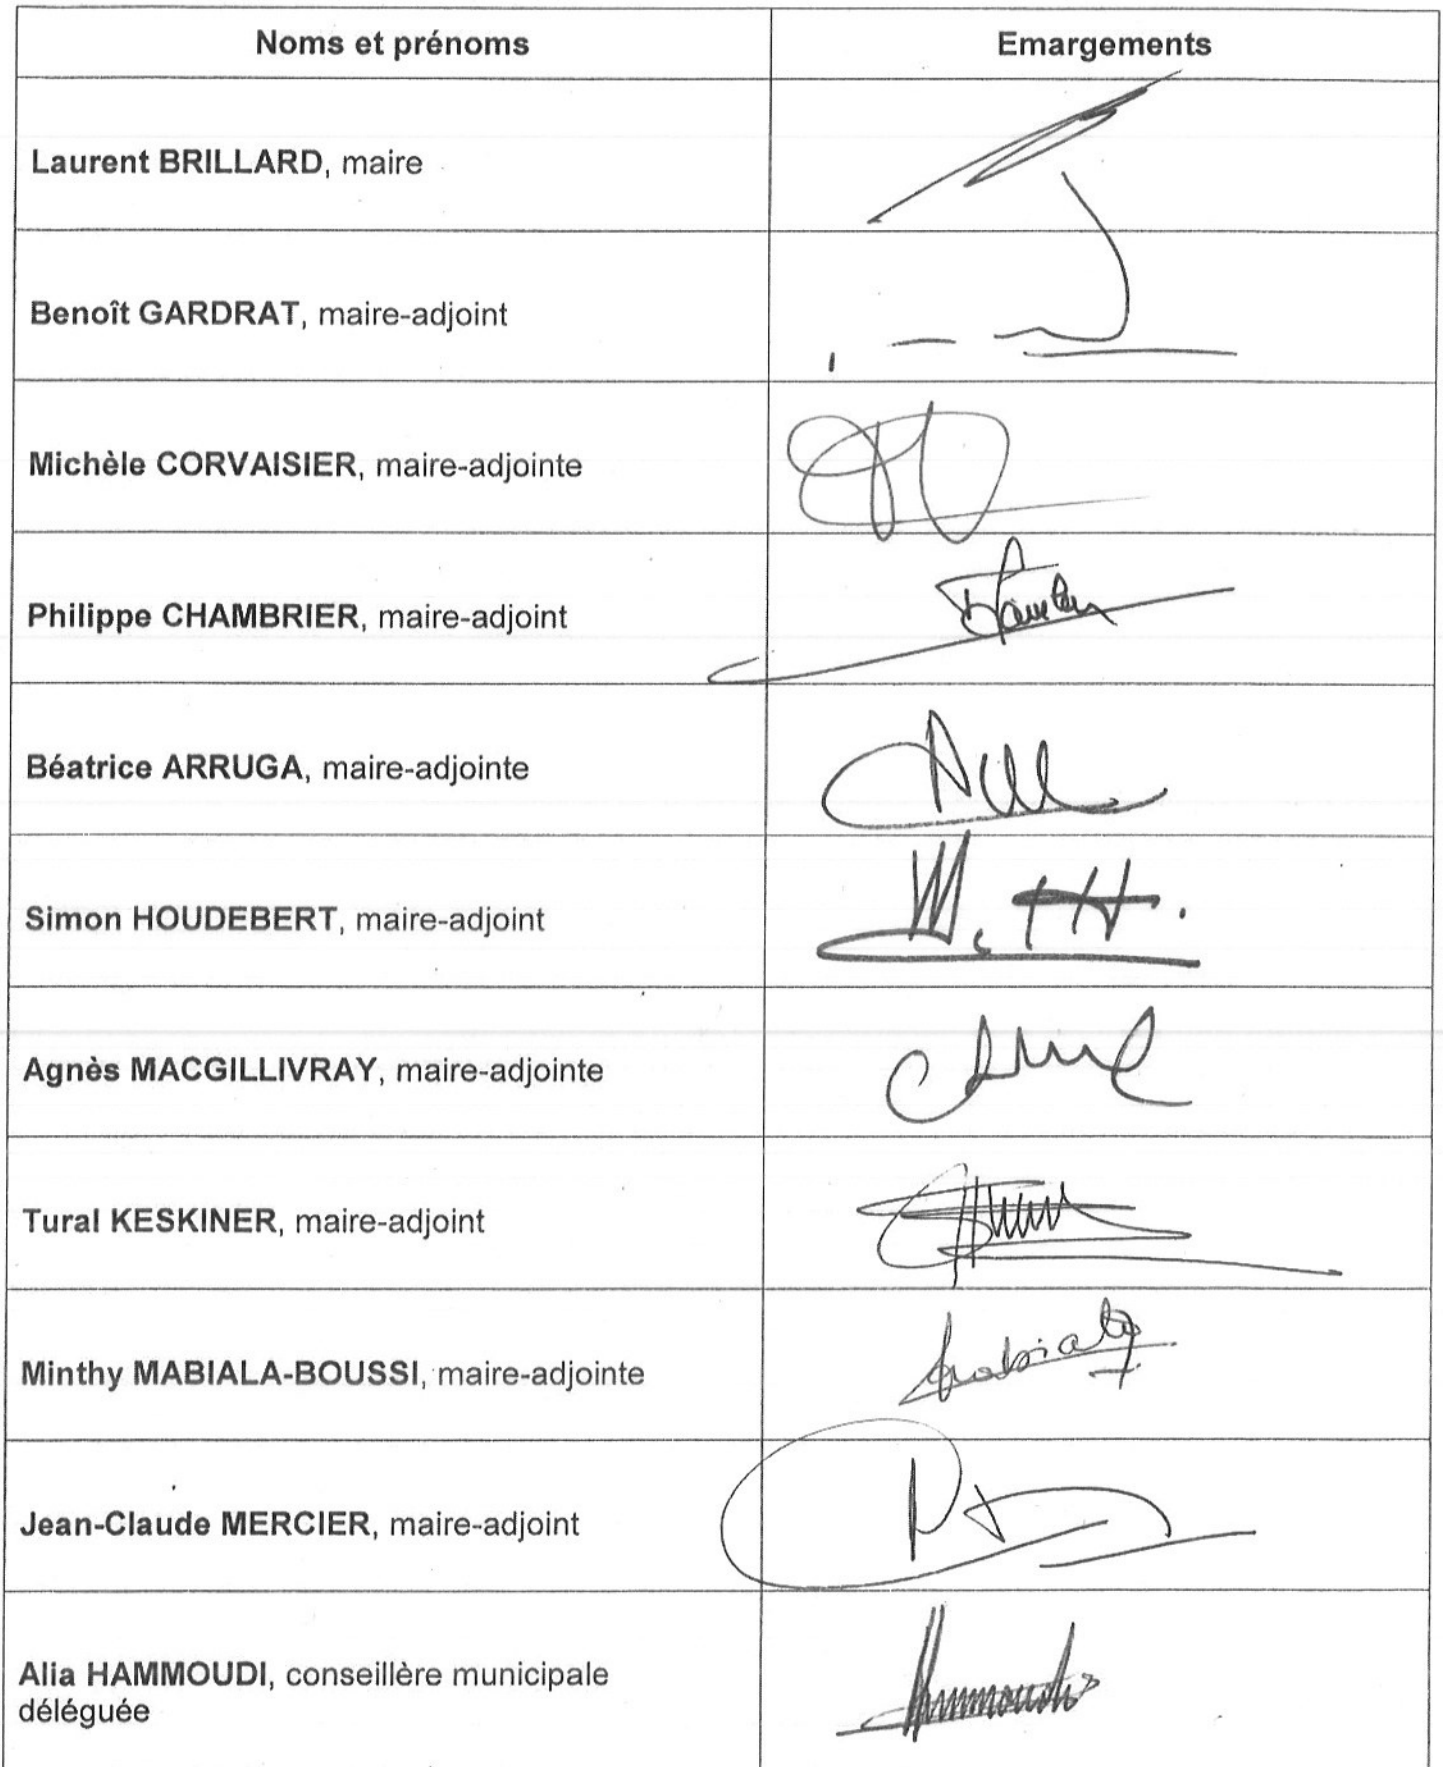 Noms et prénoms
Emargements
Laurent BRILLARD, maire
Benoît GARDRAT, maire-adjoint
Michèle CORVAISIER, maire-adjointe
Philippe CHAMBRIER, maire-adjoint
Béatrice ARRUGA, maire-adjointe
Simon HOUDEBERT, maire-adjoint
Agnès MACGILLIVRAY, maire-adjointe
Tural KESKINER, maire-adjoint
Minthy MABIALA-BOUSSI, maire-adjointe
Jean-Claude MERCIER, maire-adjoint
Alia HAMMOUDI, conseillère municipale
déléguée